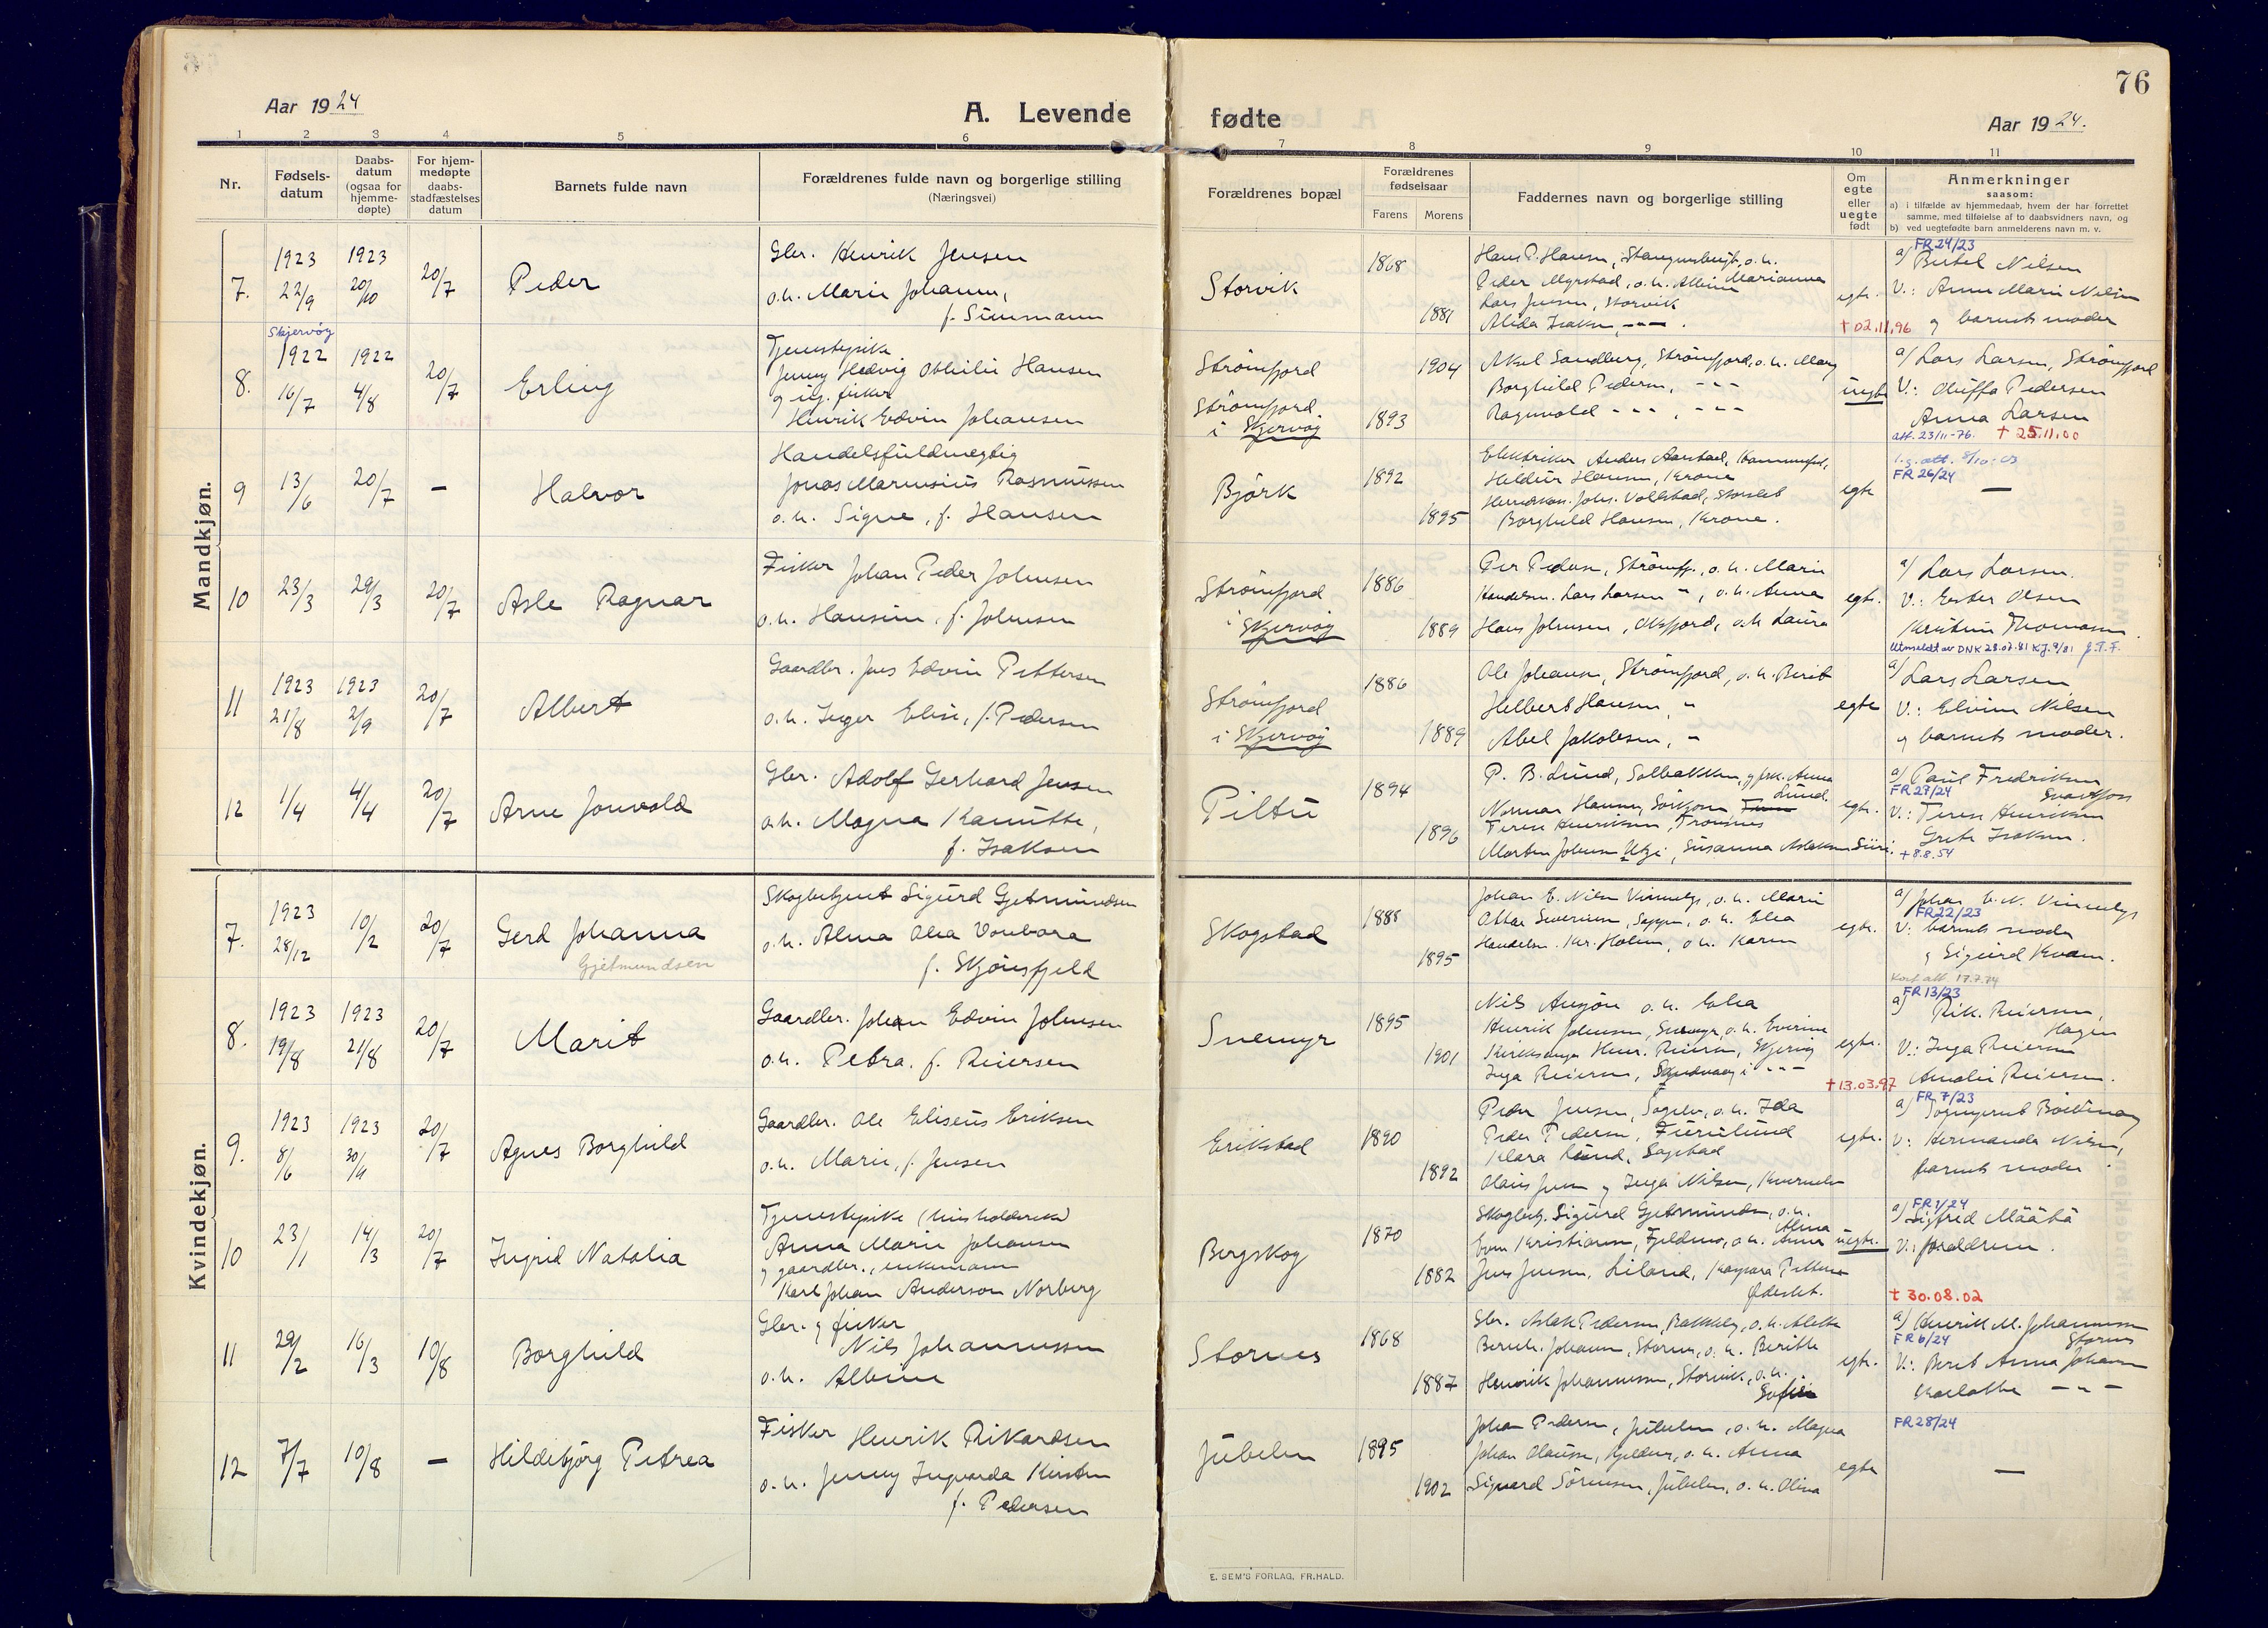 76
Aar 1924
A. Levende
fødte
Aar 1924.
1 2 3 4 5 6 7 8 9 10 11
Nr.
Fødsels-
datum
Daabs-
datum
(ogsaa for
hjemme-
døpte)
For hjem-
medøpte
daabs-
stadfæstelses
datum
Barnets fulde navn
Forældrenes fulde navn og borgerlige stilling
(Næringsvei)
Forældrenes bopæl
Forældrenes
fødselsaar
Farens Morens
Faddernes navn og borgerlige stilling
Om
egte
eller
uegte
født
Anmerkninger
saasom:
a) i tilfælde av hjemmedaab, hvem der har forrettet
samme, med tilføielse af to daabsvidners navn, og
b) ved uegtefødte barn anmelderens navn m. v.
Mandkjøn.
7.
1923
22/9
1923
20/10
20/7
Peder
Gbr. Henrik Jensen
o.h. Marie Johanne,
f. Simmann
Storvik
1868
1881
Peder Myrstad, o.h. Albine Marianna
Lars Jensen, Storvik
Alida Isaksen, -"-.
egte.
† 02.11.96
FR 24/23
a) Bertel Nilsen
V.: Anne Marie Nilsen
og barnets moder
8.
Skjervøy
1922
16/7
1922
4/8
20/7
Erling
Tjenestepike
Jenny Hedvig Othilie Hansen
og ug. fisker
Henrik Edvin Johansen
Strømfjord
Strømfjord
i Skjervøy
1904
1893
Aksel Sandberg, Strømfjord, o.h. Mary
Borghild Pedersen, -"-
Ragnvald -"-, -"-
uegte
a/ Lars Larsen, Strømfjord
V.: Oluffa Pedersen
Anna Larsen
att. 23/11-76. † 25.11.00
9
13/6
20/7
-
Halvor
Handelsfuldmegtig
Jonas Marensius Rasmussen
o.h. Signe, f. Hansen
Bjørk
1892
1895
Elektriker Anders Aarstad,
Hildur Hansen, Krone
Johs. Vollstad, Storslet
Borghild Hansen, Krone.
egte
l.g. att. 8/10-03
FR 26/24
-
10
23/3
29/3
20/7
Asle Ragnar
Fisker Johan Peder Johnsen
o.h. Hansine, f. Johnsen
Strømfjord
i Skjervøy
1886
1889
Per Pedersen, Strømfj., o.h. Marie
Handelsm. Lars Larsen -", o.h. Anna
Hans Johnsen, Oksfjord, o.h. Laura
egte.
a/ Lars Larsen.
V.: Ester Olsen
Kristine Thomassen.
Utmeldt av DNK 28.02.81 Kj. 9/81 J.T.F.
11
1923
21/8
1923
2/9
20/7
Albert
Gaardbr. Jens Edvin Pettersen
o.h. Inger Elise, f. Pedersen
Strømfjord
i Skjervøy
1886
1889
Ole Johansen, Strømfjord, o.h. Berit
Helbert Hansen, "
Abel Jakobsen, "
egte
a/ Lars Larsen
V.: Elvine Nilsen
og barnets moder.
12
1/4
4/4
20/7
Arne Jonvald
Gbr. Adolf Gerhard Jensen
o.h. Magna Kamitte,
f. Isaksen
Piltu
1894
1896
P. B. Lund, Solbakken, og frk. Anna Lund.
Normar Hansen, Sørkjosen
Terese Henriksen, Tromsnes
Morten Johnsen Utzi, Susanna Aslaksen Siiri.
egte.
a/ Paul Fredriksen
Svartfoss
FR 27/24
V.: Terese Henriksen
Grete Isaksen.
† 8.8.54
Kvindekjøn.
7.
1923
28/12
10/2
20/7
Gerd Johanna
Gjetmundsen
Skogbetjent Sigurd Gjetmundsen
o.h. Alma Olea Vonbora
f. Skjønsfjeld
Skogstad
1888
1895
Johan E. Nilsen Vinnelys, o.h. Marie
Ottar Severinsen, Sappen, o.h. Elea
Handelsm. Kr. Holmen, o.h. Karen
egte.
a/ Johan E. N. Vinnelys
FR 22/23
V: barnets moder
og Sigurd Kvam.
Konf. att. 17.7.74
8.
1923
19/8
1923
21/8
20/7
Marit
Gaardbr. Johan Edvin Johnsen
o.h. Petra. f. Reiersen
Snemyr
1895
1901
Nils Ansjøn o.h. Elea
Henrik Johnsen, Snemyr, o.h. Everine
Kirkesanger Henr. Reiersen, Skjervøy
Inga Reiersen, -"-
egte.
† 13.03.97
FR 13/23
a) Rik. Reiersen,
Hagen
V.: Inga Reiersen
Amalie Reiersen.
9.
1923
8/6
1923
30/9
20/7
Agnes Borghild
Gaardbr. Ole Eliseus Eriksen
o.h. Marie, f. Jensen
Erikstad
1890
1892
Peder Jensen, Sagelv, o.h. Ida
Peder Pedersen, Furulund
Klara Lund, Sagstad
Olaus Jensen og Inga Nilsen, Kvernelv
egte.
FR 7/23
V: Hermanda Nilsen,
barnets moder.
10
23/1
14/3
20/7
Ingrid Natalia
Tjenestepike (husholderske)
Anna Marie Johansen
og gaardbr., enkemann
Karl Johan Anderson Norberg
Bergskog
1870
1882
Skogbetj. Sigurd Gjetmundsen, o.h. Alma
Even Kristiansen, Fjeldmo, o.h. Anna
Jens Jensen, Liland, Kaspara Pettersen
Øveslet.
uegte.
FR 1/24
a) Sigfred Määtä
V.: foreldrene.
† 30.08.02
11
29/2
16/3
10/8
Borghild
Gbr. og fisker
Nils Johannessen
o.h. Albine
Stornes
1868
1887
Gbr. Aslak Pedersen, Bakkeby, o.h. Alette
Bernh. Johansen, Stornes, o.h. Berithe
Henrik Johannessen, Storvik, o.h.
Sofie
egte.
a) Henrik M. Johannessen
Stornes
FR 6/24
V.: Berit Anna Johansen
Karlotte -"-
12
7/7
10/8
-
Hildebjørg Petrea
Fisker Henrik Rikardsen
o.h. Jenny Ingvarda Kirsten
f. Pedersen
Jubelen
1895
1902
Johan Pedersen, Jubelen, o.h. Magna
Johan Olaussen, Kjelderen, o.h. Anna
Sigvard Sørensen, Jubelen, o.h. Olina
egte
FR 28/24
-
E. SEM'S FORLAG, FR.HALD.